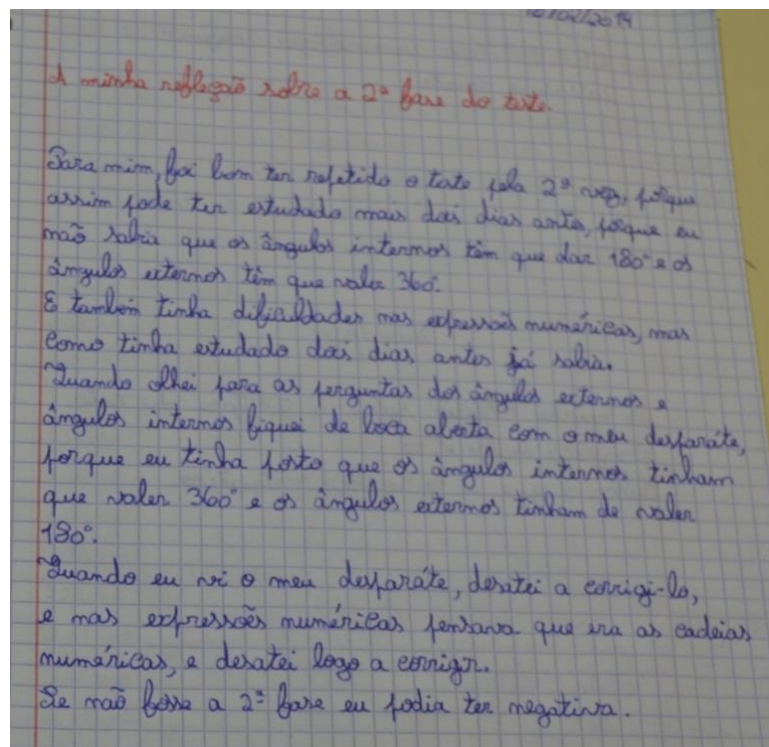 10/02/2014
A minha refleção sobre a 2ª fase do teste.
Para mim, foi bom ter repetido o teste pela 2ª vez, porque
assim pode ter estudado mais dois dias antes, porque eu
não sabia que os ângulos internos têm que dar 180º e os
ângulos externos têm que valer 360º.
E também tinha dificuldades nas expressões numéricas, mas
como tinha estudado dois dias antes já sabia.
Quando olhei para as perguntas dos ângulos externos e
ângulos internos fiquei de boca aberta com o meu desparáte,
porque eu tinha posto que os ângulos internos tinham
que valer 360º e os ângulos externos tinham de valer
180º.
Quando eu vi o meu desparáte, desatei a corrigi-lo,
e nas expressões numéricas pensava que era as cadeias
numéricas, e desatei logo a corrigir.
Se não fosse a 2ª fase eu podia ter negativa.